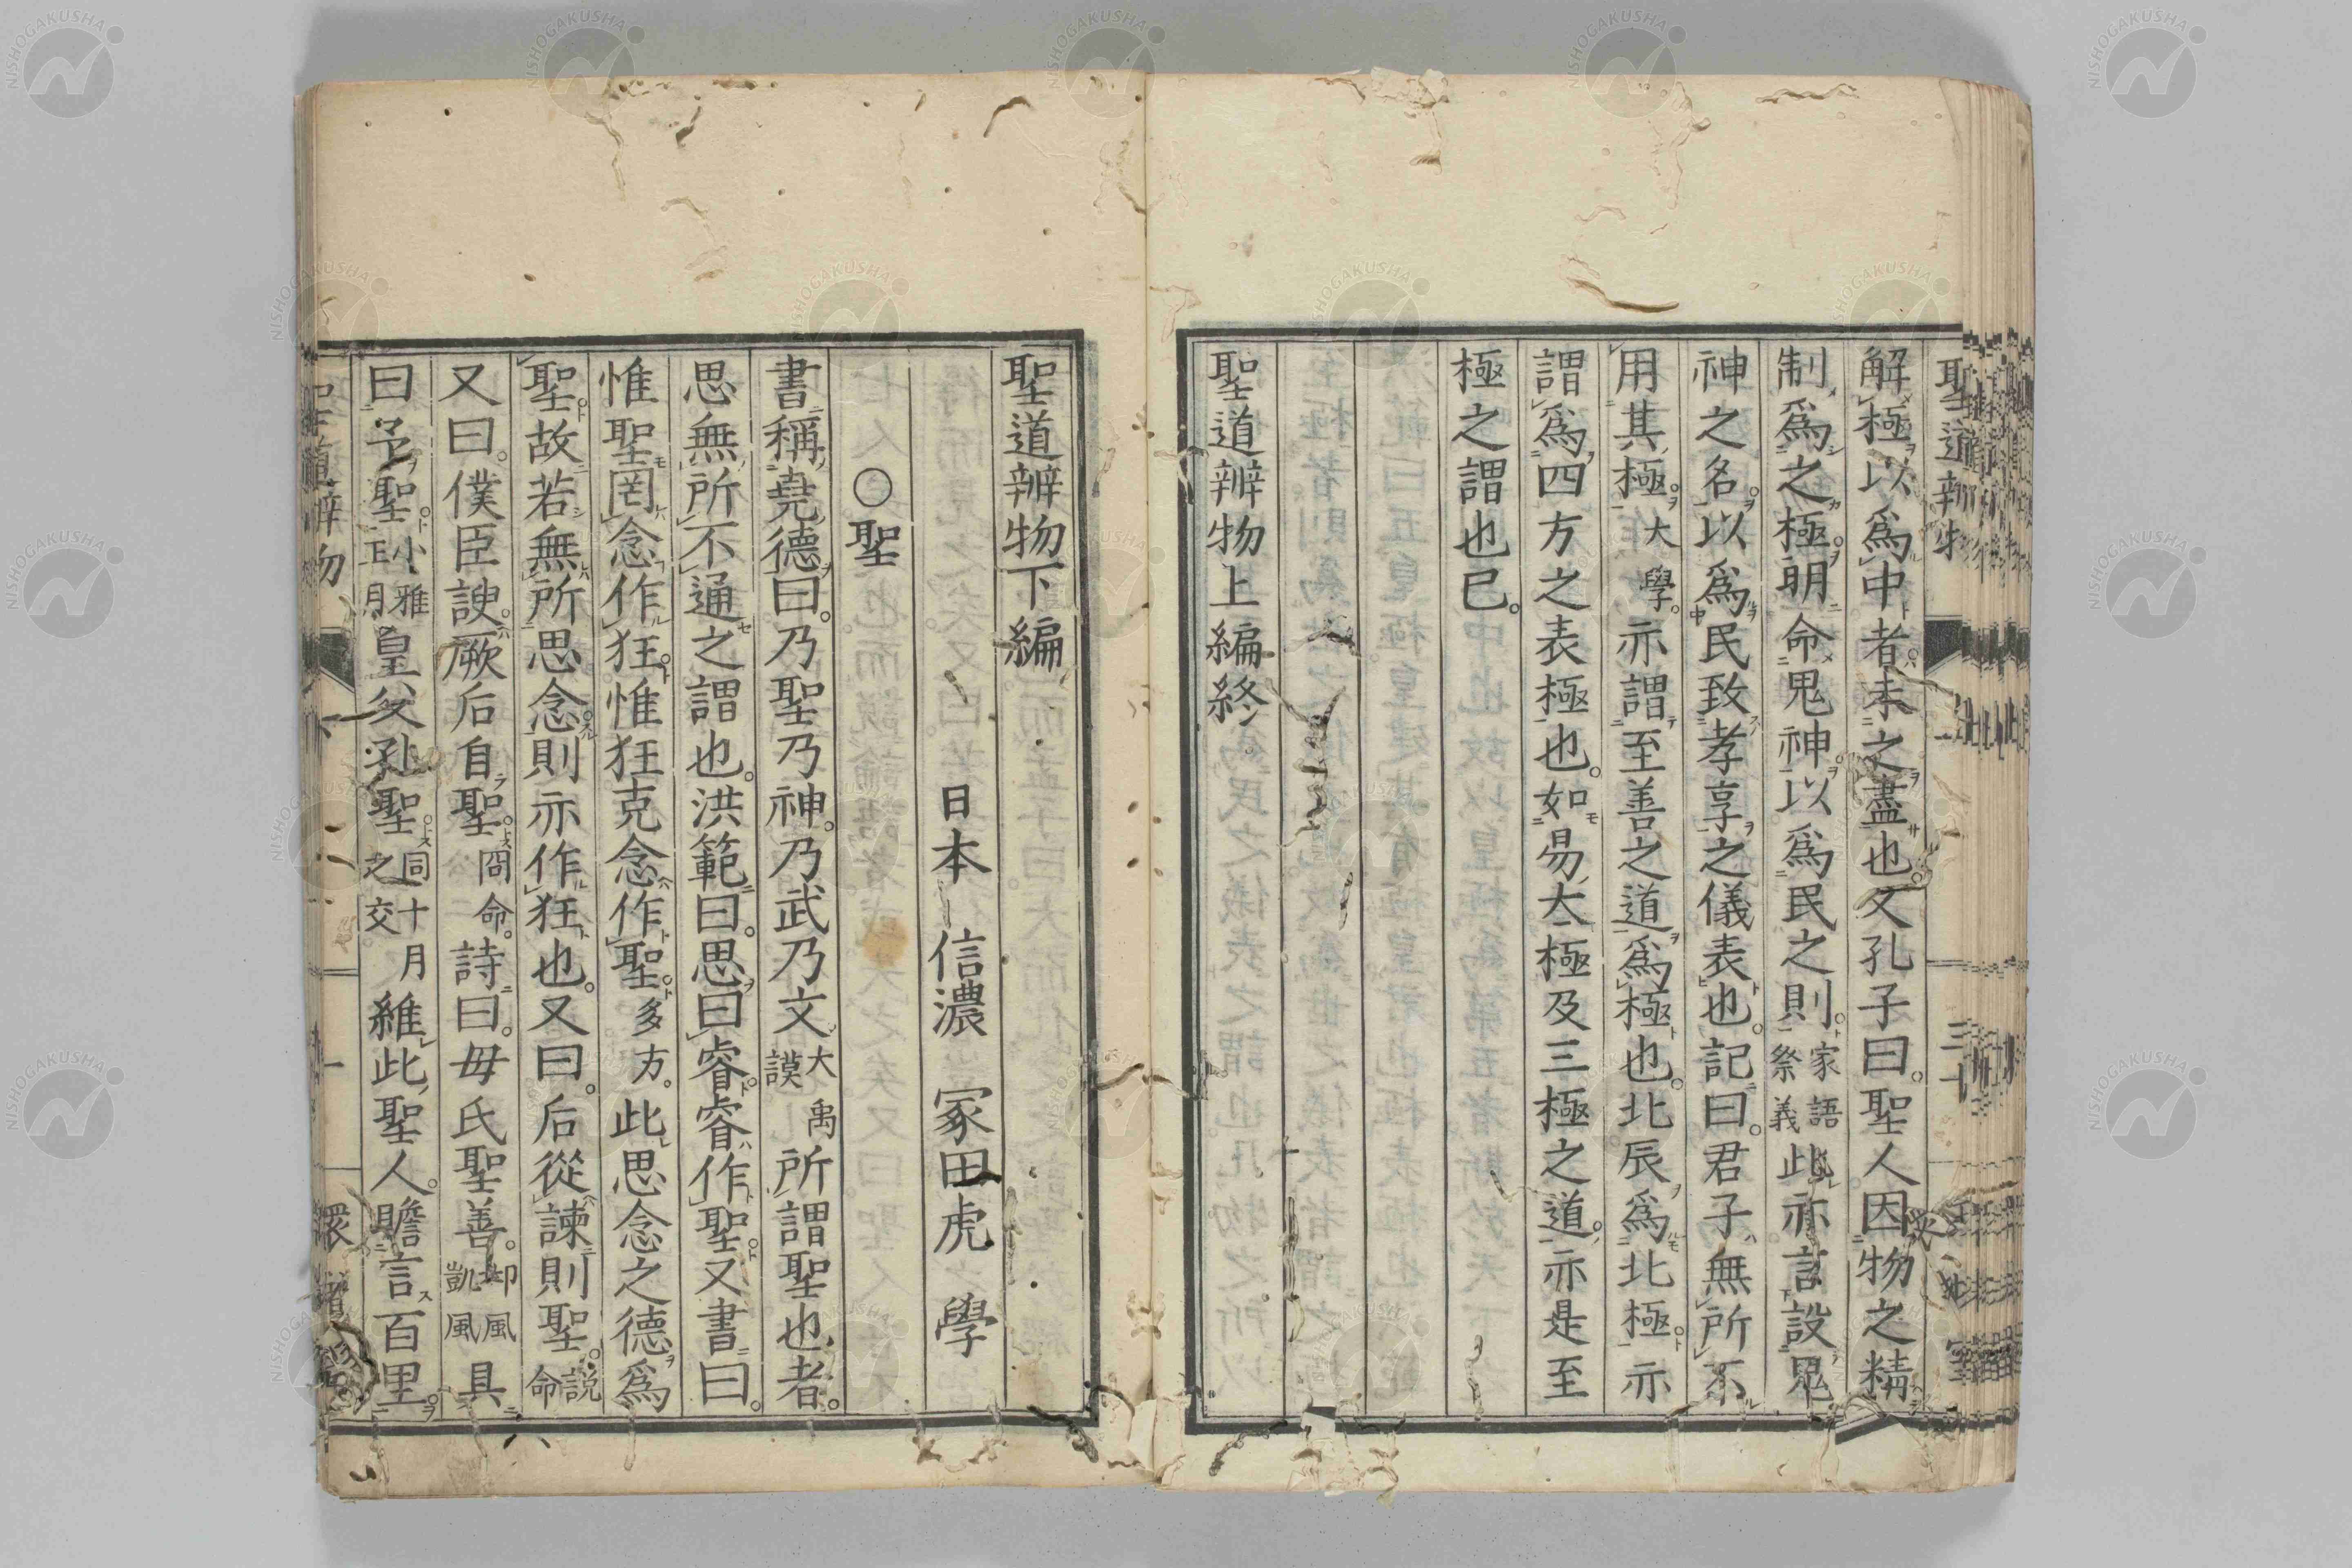 解極以爲中者未之盡也又孔子曰。聖人因物之精
制爲之極。明命鬼神。以爲民之則。家語祭義此亦言設鬼
神之名。以爲民致孝享之儀表也。記曰。君子無所不
用其極。大學。亦謂至善之道爲極也。北辰爲北極。亦
謂爲四方之表極也。如易大極及三極之道。亦是至
極之謂也已。
聖道辨物上編終
聖道辨物下編
日本 信濃 冢田虎 學
○聖
書稱堯德曰。乃聖乃神。乃武乃文大禹謨所謂聖也者。
思無所不通之謂也。洪範曰。思曰睿。睿作聖。又書曰。
惟聖罔念作狂。惟狂克念作聖。多方。此思念之德爲
聖。故若無所思念。則亦作狂也。又曰。后從諫則聖。說命
又曰。僕臣諛。厥后自聖。冏命。詩曰。毋氏聖善。邶風凱風具
曰予聖。小雅正月皇父孔聖。同十月之交。維此聖人。瞻言百里。